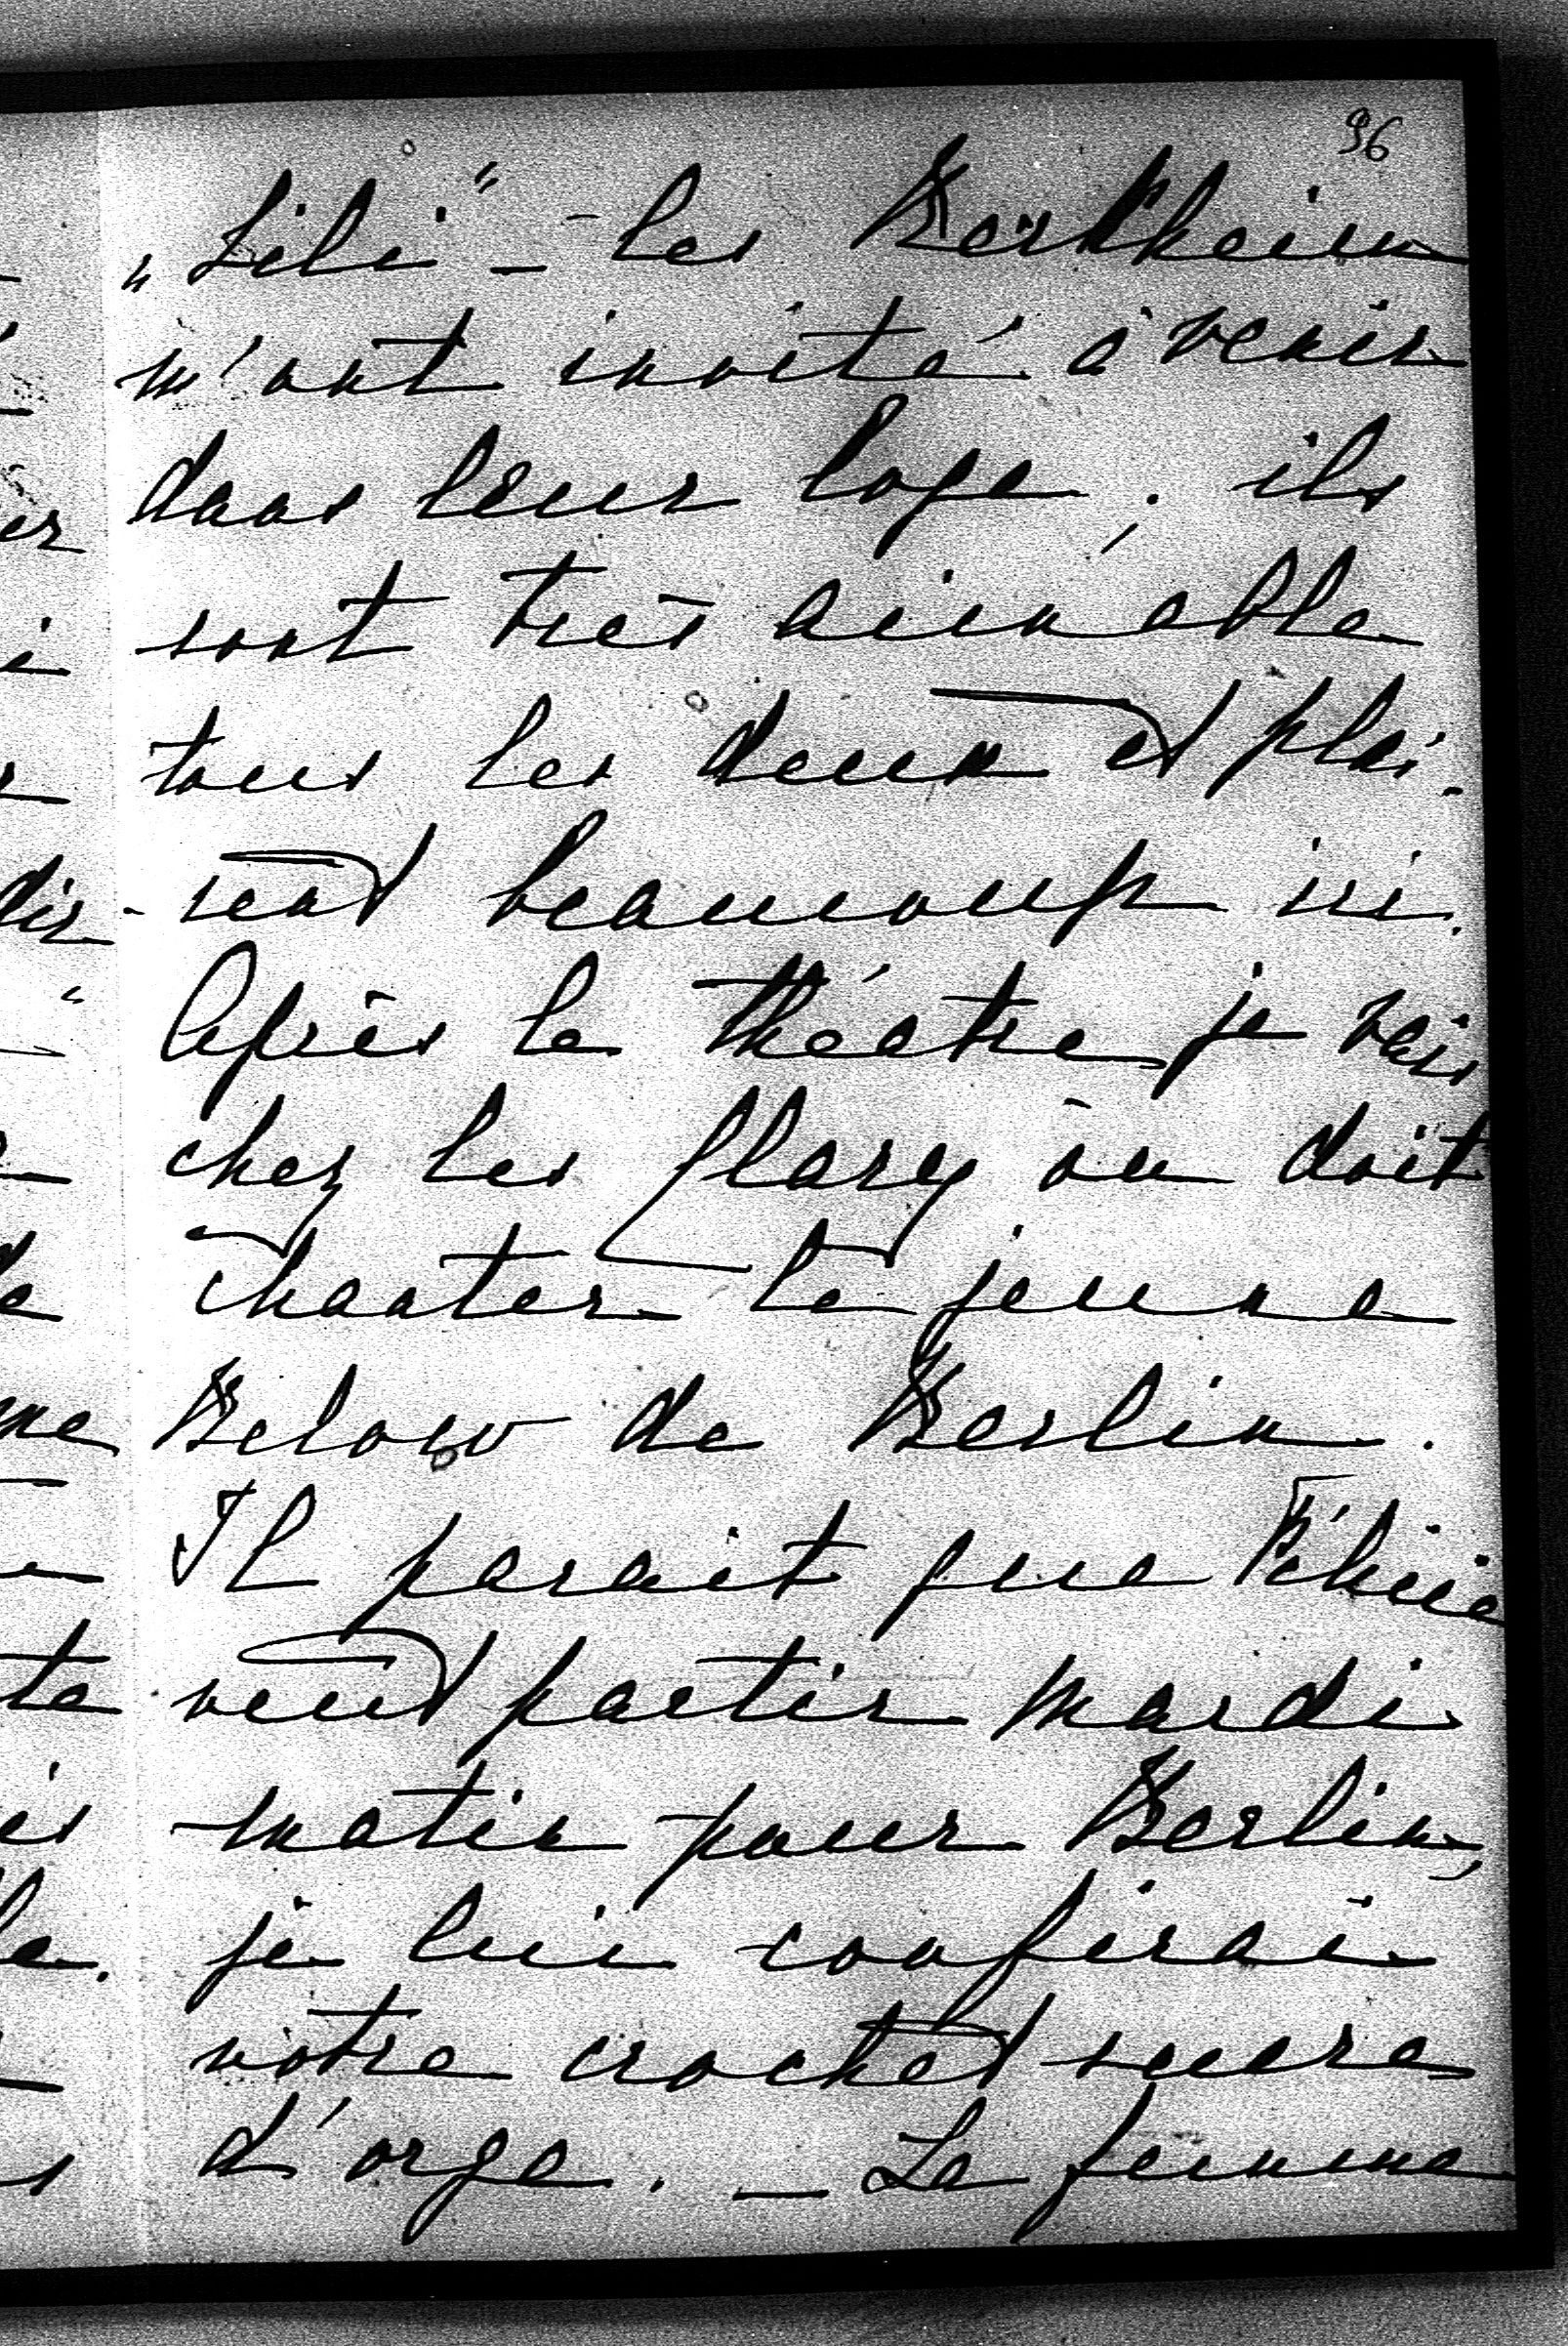 96
„Lili" – les Berkheim
m'ont invité à venir
dans leur loge ; ils
sont très aimable
tous les deux et plai-
-sent beaucoup ici.
Après le théâtre je vais
chez les Flary où doit
chanter le jeune
Below de Berlin.
Il parait que
veut partir mardi
matin pour Berlin,
je lui confierai
votre crochet sucre
d'orge. – La femme